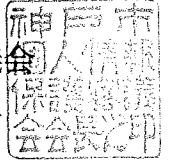 神戸市
会
個人情報
保護審議
会会長印